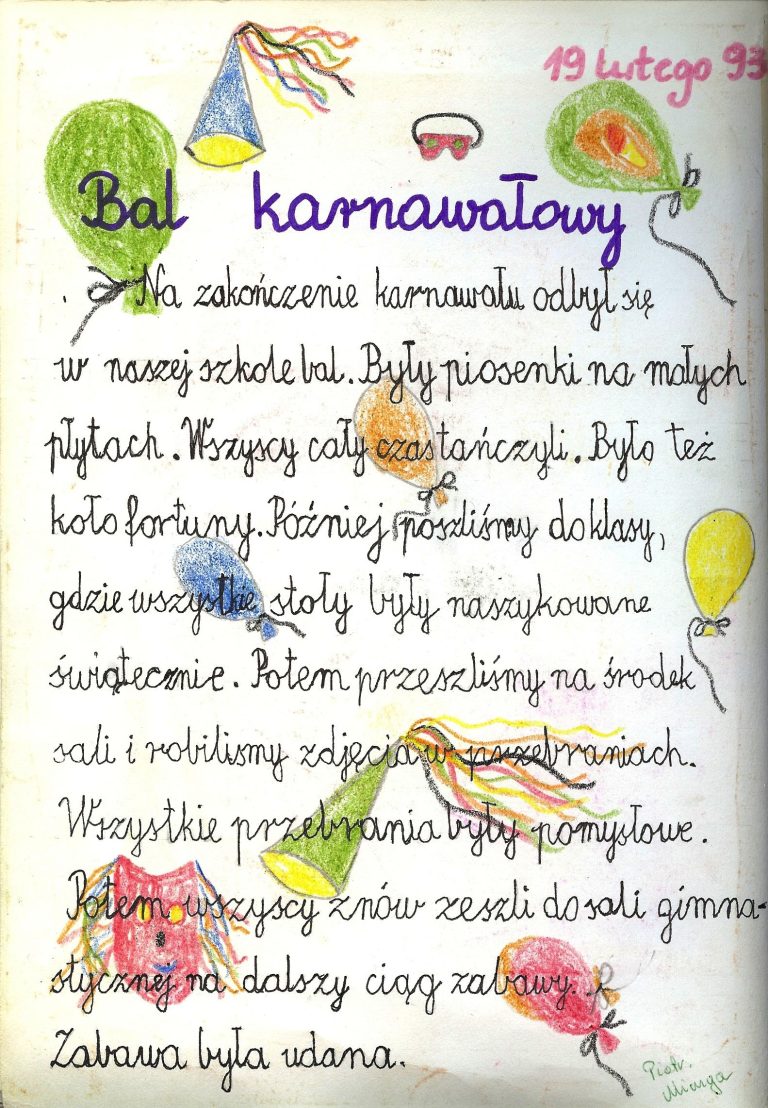 19 lutego 93
Bal karnawałowy
Na zakończenie karnawału odbył się
w naszej szkole bal. Były piosenki na małych
płytach. Wszyscy cały czas tańczyli. Było też
koło fortuny. Później poszliśmy do klasy,
gdzie wszystkie stoły były naszykowane
świątecznie. Potem przeszliśmy na środek
sali i robilismy zdjęcia w przebraniach.
Wszystkie przebrania były pomysłowe.
Potem wszyscy znów zeszli do sali gimna-
stycznej na dalszy ciąg zabawy.
Zabawa była udana.
Piotr.
Miurga